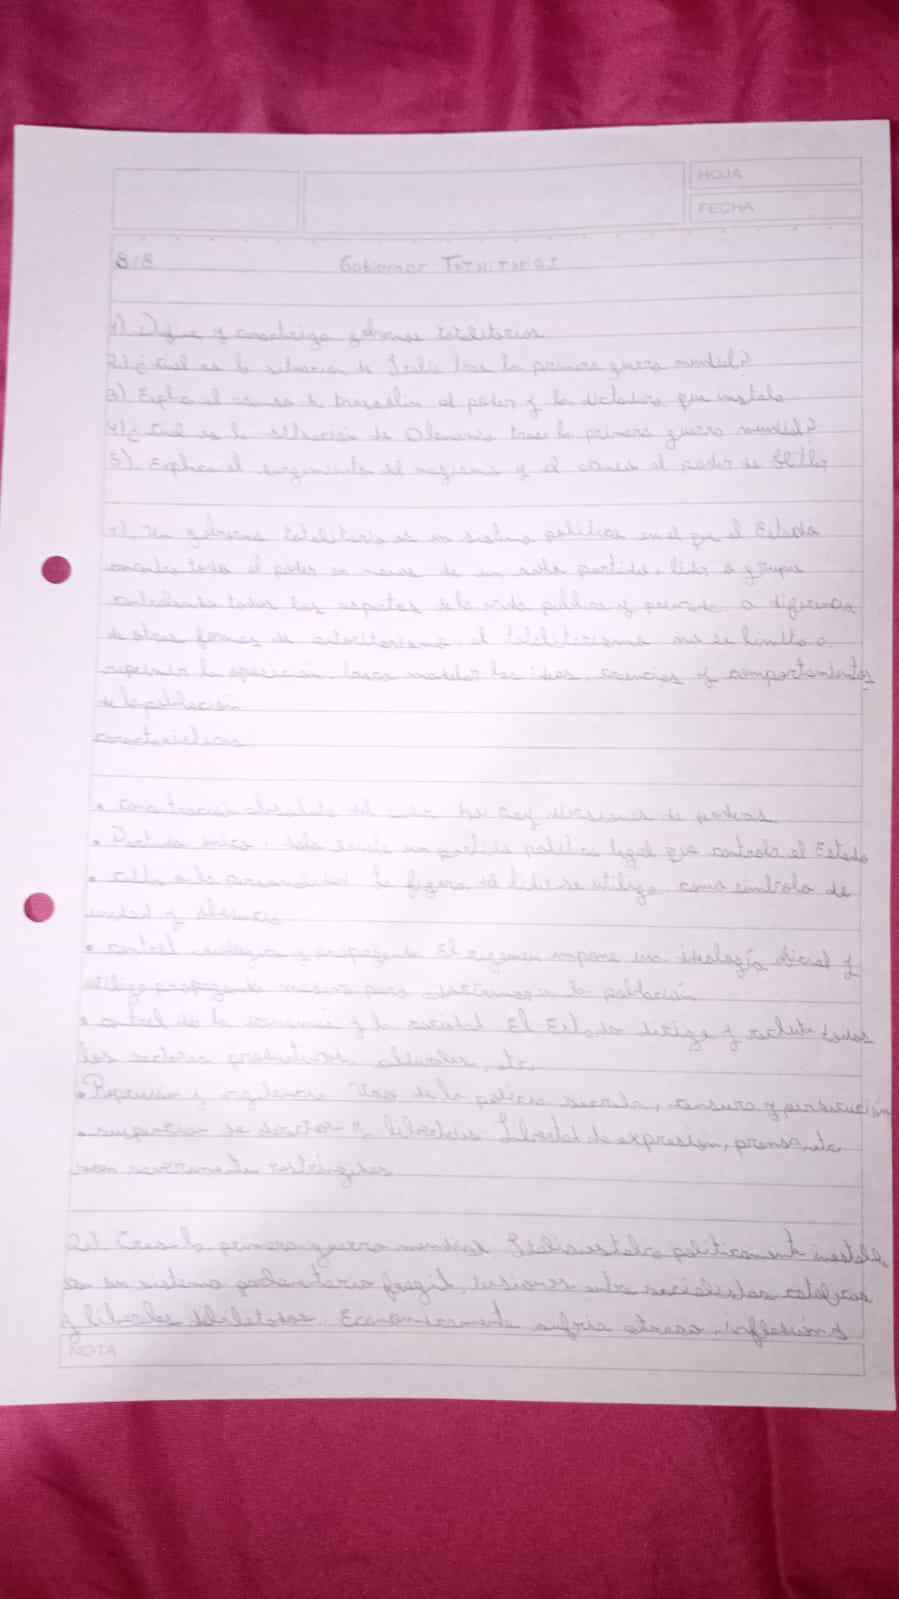 HOJA
FECHA
8/8 Gobiernos
1) y gobiernos totalitarios
2) ¿Cual es la situacion de Italia tras la primera guerra mundial?
3) Explica el acenso de al poder y la dictadura que instala
4) ¿Cual es la situación de Alemania tras la primera guerra mundial?
5) Explica el surgimiento del y el al poder de Hitler
1) Un gobierno totalitario es un sistema político en el que el Estado
todo el poder en manos de un solo partido, lider o grupo
controlando todos los aspectos de la vida publica y privada a diferencia
de otras formas de autoritarismo el totalitarismo no se limita a
reprimir la oposición, busca moldear las ideas, creencias y comportamientos
de la población
caracteristicas
• absoluta del no hay divisiones de poderes
• Partido único: solo existe un partido politico legal que controla el Estado
• Culto a la la figura del lider se utiliza como simbolo de
unidad y
• control y propaganda El regimen impone una ideología oficial y
utiliza propaganda masiva para a la población
• control de la economia y la sociedad El Estado dirige y todos
los sectores productivos, culturales, etc.
• Represion y vigilancia Uso de la policia secreta, censura y persecucion
• de y libertades Libertad de expresion, prensa, etc
son severamente restringidas
2) Tras la primera guerra mundial Italia estaba politicamente inestable,
en un sistema parlamentario fragil, tensiones entre socialistas catolicos
y liberales debilitados. Economicamente sufria atraso, inflacion y
NOTA